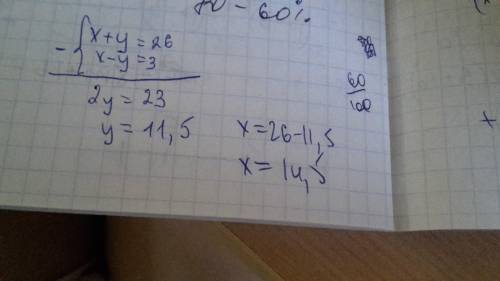 70 - 60%
- { x+y=26
x-y=3
2y = 23
y = 11,5
x=26-11,5
x= 14,5
60
100